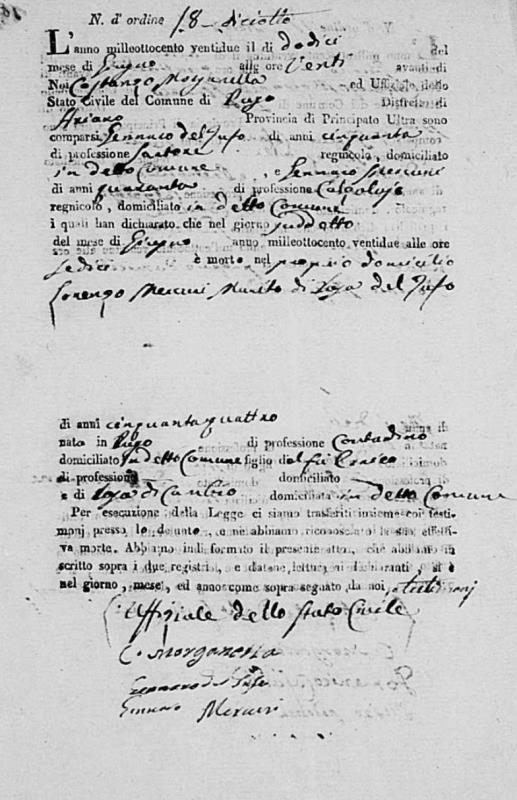 N. d' ordine 18 - diciotto
L'anno milleottocento ventidue il di dodici del
mese di Giugno alle ore Venti avanti di
Noi Costanzo Morganella ed Uffiziale dello
Stato Civile del Comune di Distretto di
Ariano Provincia di Principato Ultra sono
comparsi Gennaro del Tufo di anni cinquanta
di professione Sartore regnicolo, domiciliato
in detto Comune, e Gennaro
di anni quaranta di professione Calzolajo
regnicolo, domiciliato in detto Comune
i quali han dichiarato che nel giorno suddetto
del mese di Giugno anno milleottocento ventidue alle ore
sedici è morto nel proprio domicilio
Lorenzo Marito di del Tufo
di anni cinquantaquattro
nato in di professione Contadino
domiciliato in detto Comune figlio del fù
di professione domiciliato
e di domiciliata in detto Comune
Per esecuzione della Legge ci siamo trasferiti insieme coi testi-
monj presso lo defunto, e ne abbiamo riconosciuto la sua effetti-
va morte. Abbiamo indi formato il presente atto, chè abbiamo in
scritto sopra i due registri, e datone lettura ai dichiaranti si è
nel giorno, mese, ed anno come sopra segnato da noi, e testimonj
L'Uffiziale dello Stato Civile
C. Morganella
Gennaro del Tufo
Gennaro